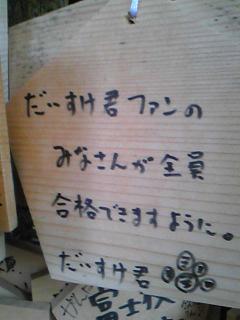 だいすけ君ファンの
みなさんが全員
合格できますように。
だいすけ君